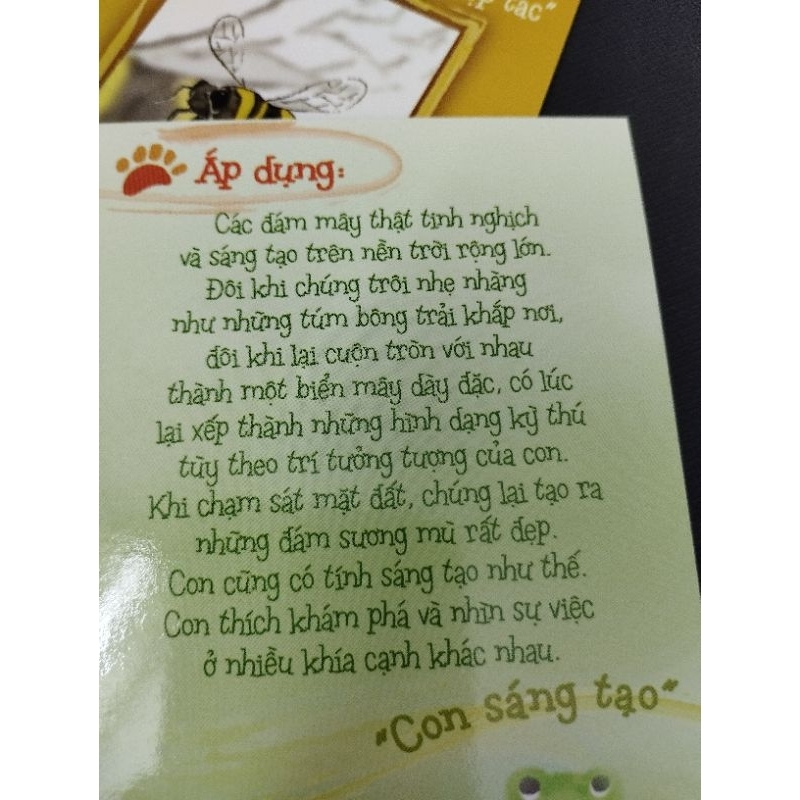 tác"
Áp dụng:
Các đám mây thật tinh nghịch
và sáng tạo trên nền trời rộng lớn.
Đôi khi chúng trôi nhẹ nhàng
như những túm bông trải khắp nơi,
đôi khi lại cuộn tròn với nhau
thành một biển mây dày đặc, có lúc
lại xếp thành những hình dạng kỳ thú
tùy theo trí tưởng tượng của con.
Khi chạm sát mặt đất, chúng lại tạo ra
những đám sương mù rất đẹp.
Con cũng có tính sáng tạo như thế.
Con thích khám phá và nhìn sự việc
ở nhiều khía cạnh khác nhau.
"Con sáng tạo"